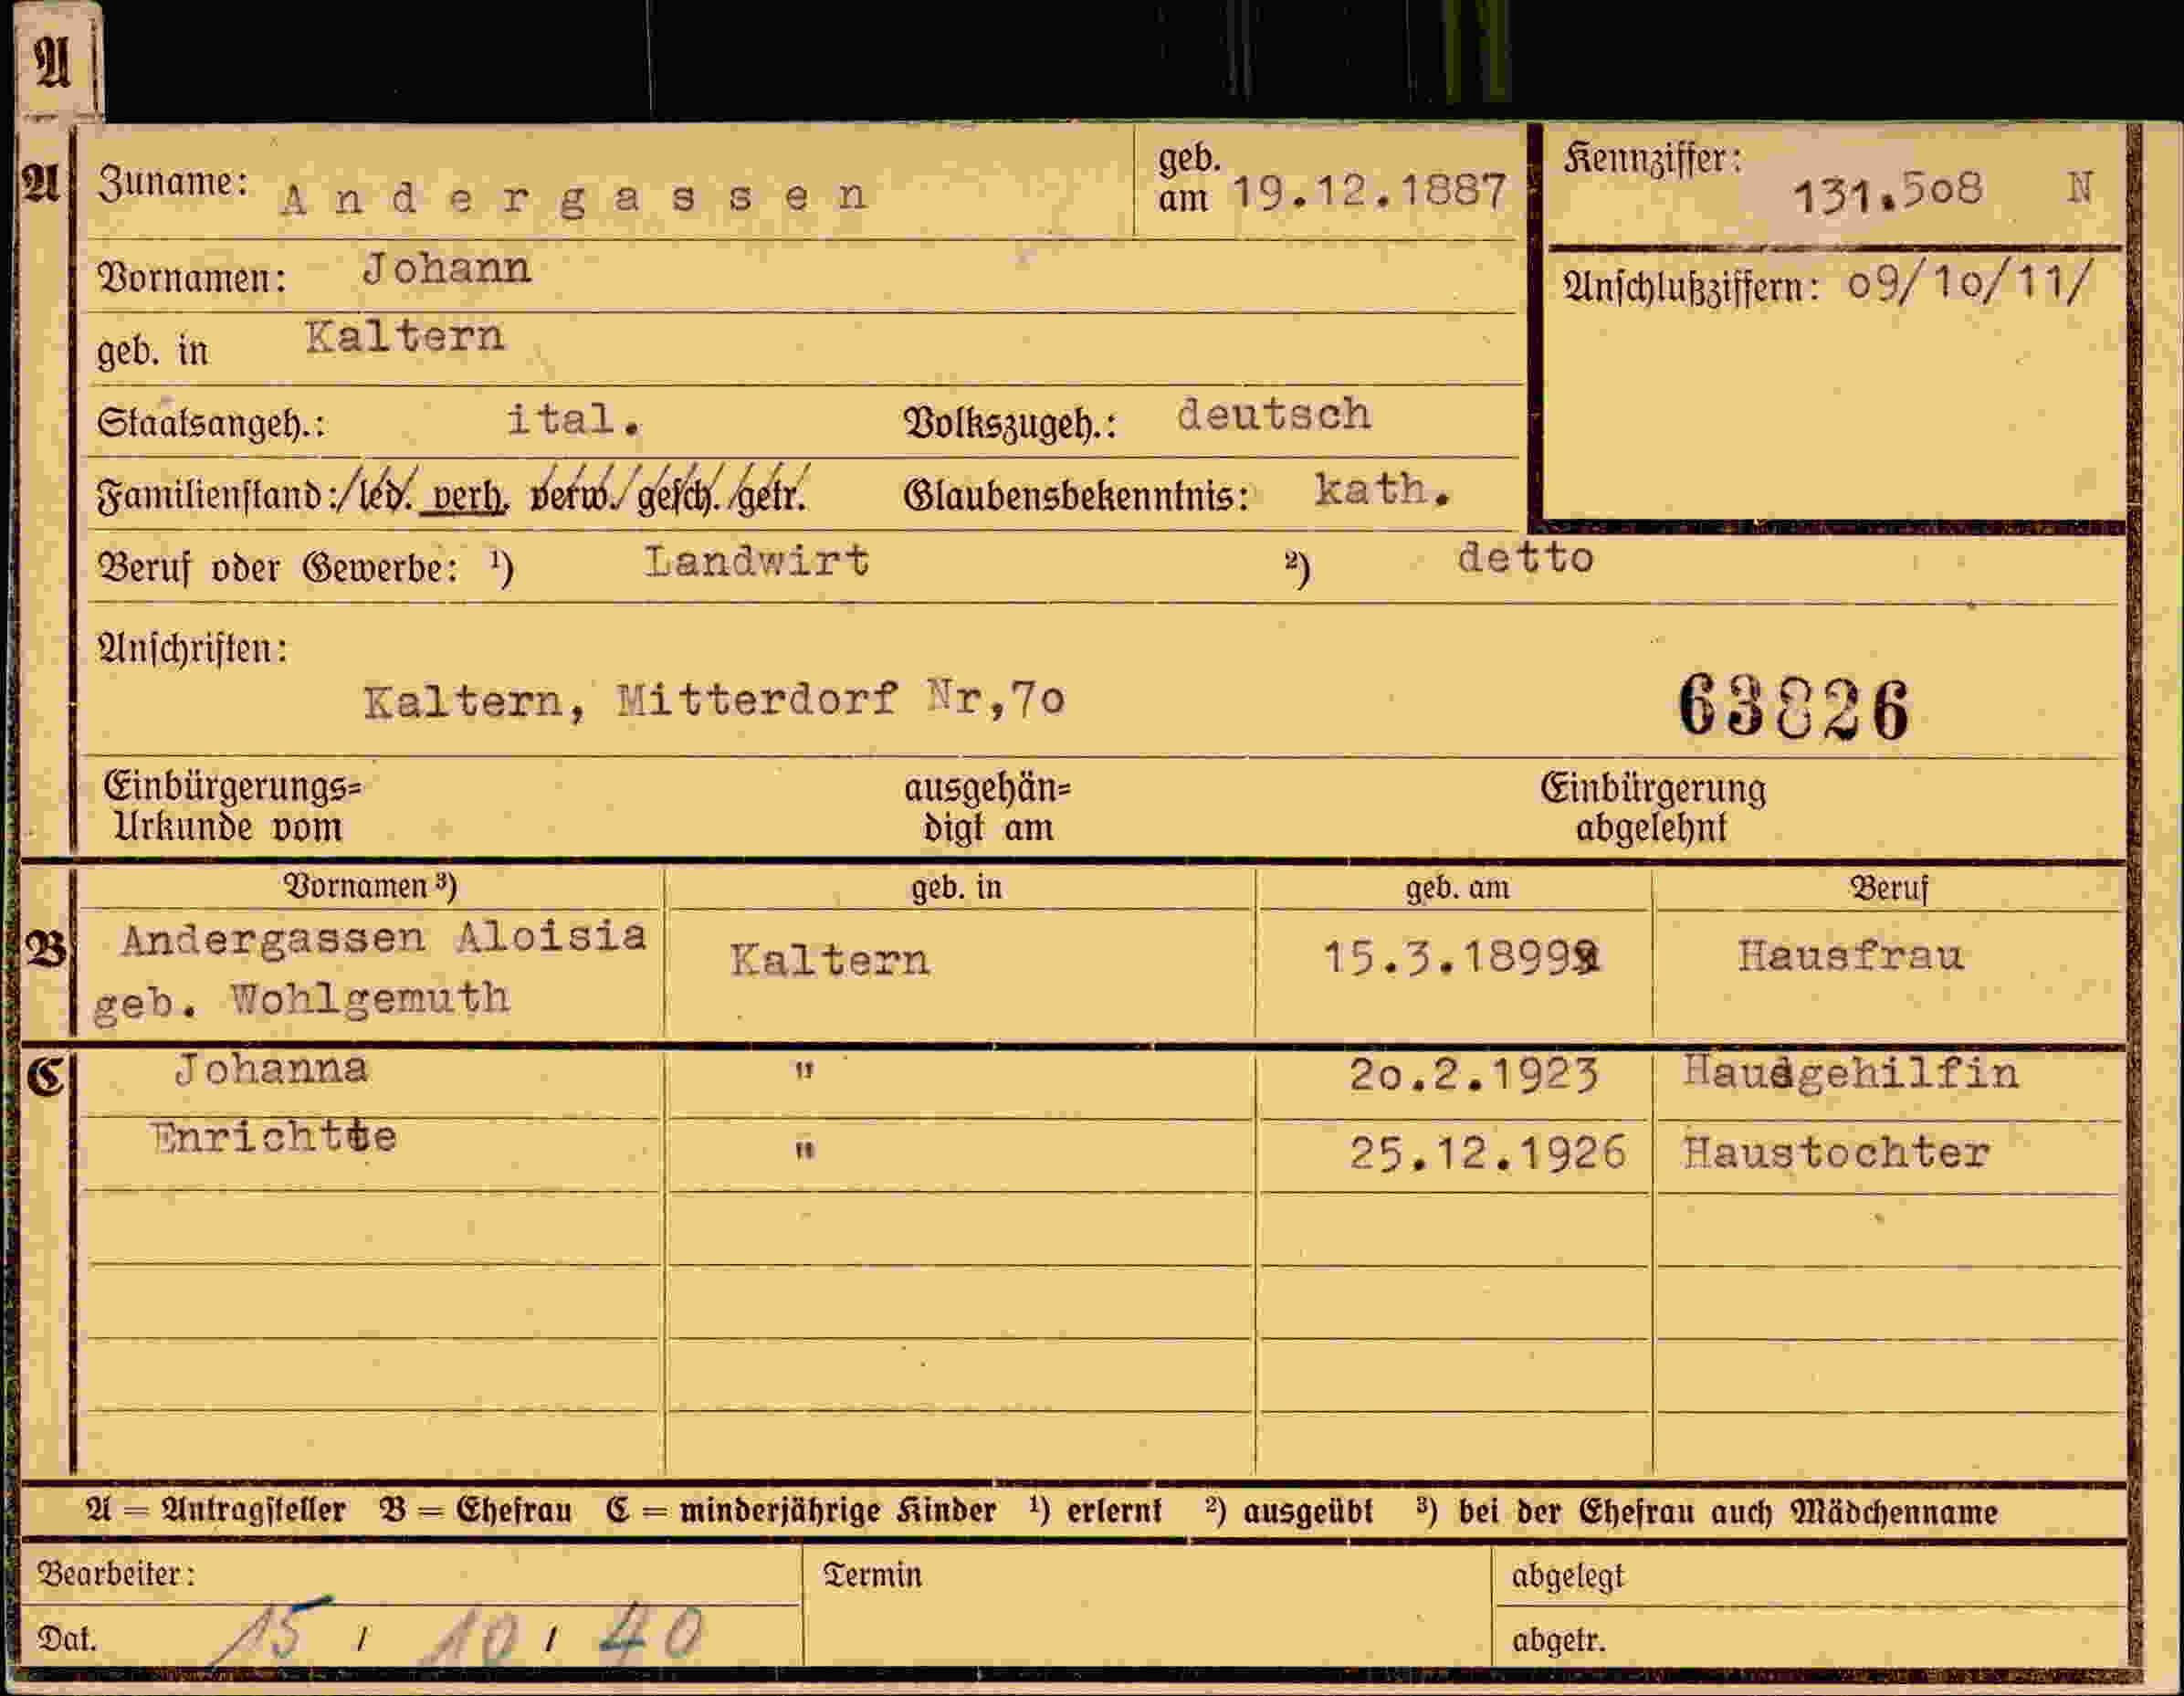 A
A
Zuname: Andergassen
geb. am 19.12.1887
Kennziffer: 131.508 N
Vornamen: Johann
Anschlußziffern: 09/10/11/
geb. in Kaltern
Staatsangeh.: ital. Volkszugeh.: deutsch
Familienstand: / led. verh. verw. / gesch. / getr. Glaubensbekenntnis: kath.
Beruf oder Gewerbe: ¹) Landwirt ²) detto
Anschriften:
Kaltern, Mitterdorf Nr,70
63826
Einbürgerungs=
Urkunde vom
ausgehän=
digt am
Einbürgerung
abgelehnt
Vornamen ³) geb. in geb. am Beruf
B Andergassen Aloisia Kaltern 15.3.1899 Hausfrau
geb. Wohlgemuth
C Johanna " 20.2.1923 Hausgehilfin
Enrichtte " 25.12.1926 Haustochter
A = Antragsteller B = Ehefrau C = minderjährige Kinder ¹) erlernt ²) ausgeübt ³) bei der Ehefrau auch Mädchenname
Bearbeiter: Termin abgelegt
Dat. 15 / 10 / 40 abgetr.